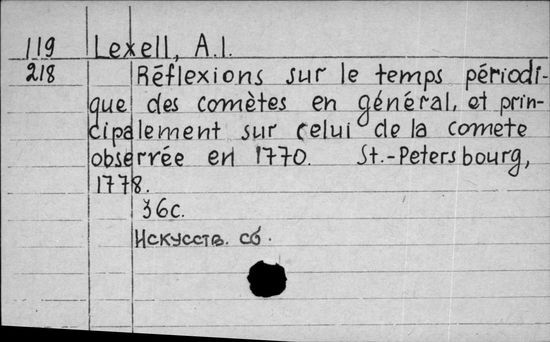 119 Lexell, A.I.
218 Réflexions sur le temps périodi-
que des comètes en général, et prin-
cipalement sur celui de la comete
obserrée en 1770. St.-Petersbourg,
1778.
36с.
Искусств. сб.